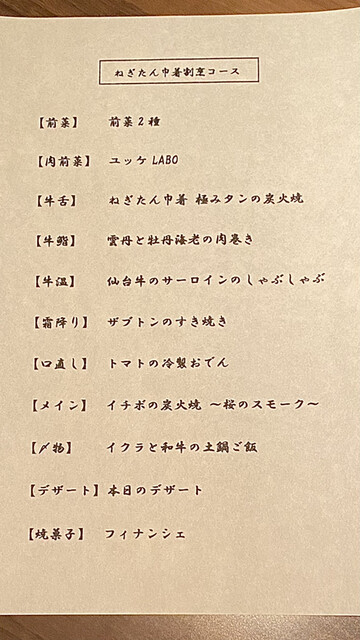 ねぎたん巾着割烹コース
【前菜】 前菜2種
【肉前菜】 ユッケLABO
【牛舌】 ねぎたん巾着 極みタンの炭火焼
【牛鮨】 雲丹と牡丹海老の肉巻き
【牛温】 仙台牛のサーロインのしゃぶしゃぶ
【霜降り】 ザブトンのすき焼き
【口直し】 トマトの冷製おでん
【メイン】 イチボの炭火焼 〜桜のスモーク〜
【〆物】 イクラと和牛の土鍋ご飯
【デザート】本日のデザート
【焼菓子】 フィナンシェ